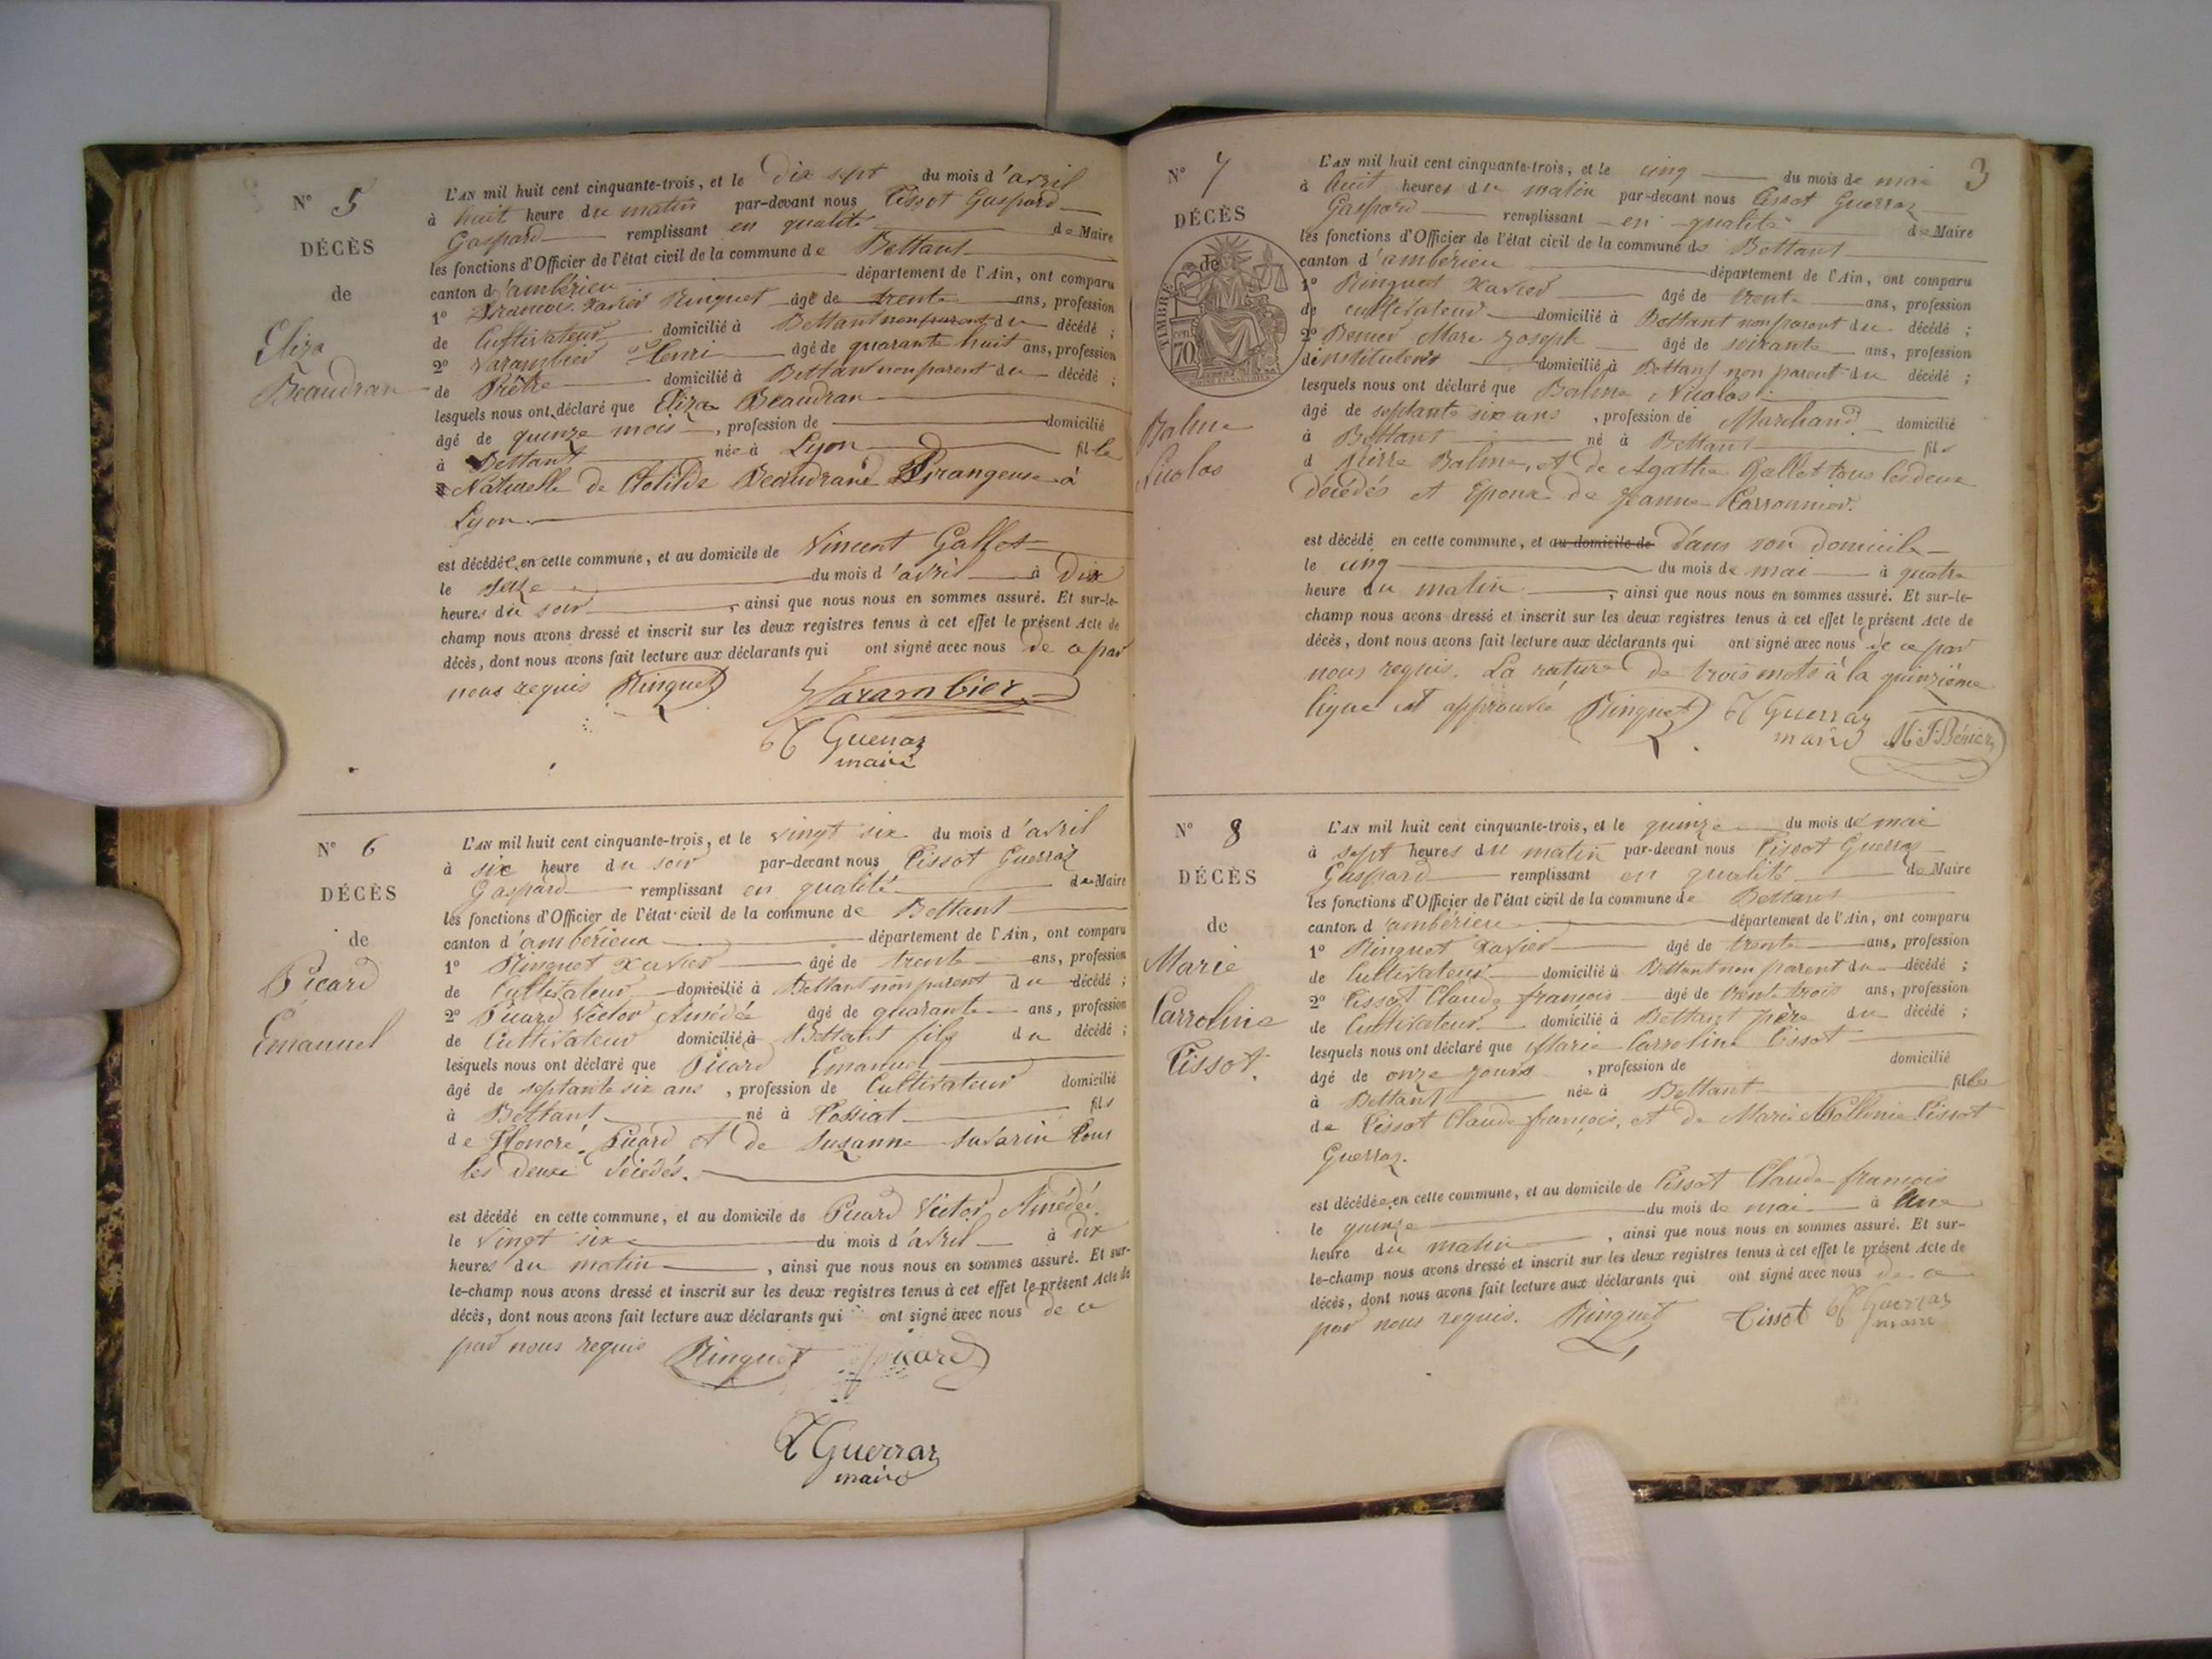 N° 5
DÉCÈS
de
Eliza
Beaudran
L'AN mil huit cent cinquante-trois, et le dix sept du mois d'avril
à huit heure du matin par-devant nous Tissot Gaspard
Gaspard remplissant en qualité de Maire
les fonctions d'Officier de l'état civil de la commune de Bettant
canton d'ambérieu département de l'Ain, ont comparu
1° François Xavier Ringuet âgé de trente ans, profession
de Cultivateur domicilié à Bettant non parent du décédé ;
2° Varambier Henri âgé de quarante huit ans, profession
de Prêtre domicilié à Bettant non parent du décédé ;
lesquels nous ont déclaré que Eliza Beaudran
âgé de quinze mois, profession de domicilié
à Bettant née à Lyon fille
Naturelle de Clotilde Beaudrand à
Lyon.
est décédée en cette commune, et au domicile de Vincent Gallet
le seize du mois d'avril à Dix
heures du soir, ainsi que nous nous en sommes assuré. Et sur-le-
champ nous avons dressé et inscrit sur les deux registres tenus à cet effet le présent Acte de
décès, dont nous avons fait lecture aux déclarants qui ont signé avec nous de ce par
nous requis Ringuet Varambier
T Guerraz
maire
N° 6
DÉCÈS
de
Picard
Emanuel
L'AN mil huit cent cinquante-trois, et le vingt six du mois d'avril
à six heure du soir par-devant nous Tissot Guerraz
Gaspard remplissant en qualité de Maire
les fonctions d'Officier de l'état civil de la commune de Bettant
canton d'ambérieux département de l'Ain, ont comparu
1° Ringuet Xavier âgé de trente ans, profession
de Cultivateur domicilié à Bettant non parent du décédé ;
2° Picard Victor Amédé âgé de quarante ans, profession
de Cultivateur domicilié à Bettant fils du décédé ;
lesquels nous ont déclaré que Picard Emanuel
âgé de septante six ans, profession de Cultivateur domicilié
à Bettant né à Possiat fils
de Honoré Picard et de Suzanne Savarin tous
les deux décédés.
est décédé en cette commune, et au domicile de Picard Victor Amédé.
le vingt six du mois d'avril à dix
heures du matin, ainsi que nous nous en sommes assuré. Et sur-
le-champ nous avons dressé et inscrit sur les deux registres tenus à cet effet le présent Acte de
décès, dont nous avons fait lecture aux déclarants qui ont signé avec nous de ce
par nous requis Ringuet picard
T Guerraz
maire
3
N° 7
DÉCÈS
de
TIMBRE
70
Balme
Nicolas
L'AN mil huit cent cinquante-trois, et le cinq du mois de mai
à huit heures du matin par-devant nous Tissot Guerraz
Gaspard remplissant en qualité de Maire
les fonctions d'Officier de l'état civil de la commune de Bettant
canton d'ambérieu département de l'Ain, ont comparu
1° Ringuet Xavier âgé de trente ans, profession
de cultivateur domicilié à Bettant non parent du décédé ;
2° Benier Marc Joseph âgé de soixante ans, profession
d'instituteur domicilié à Bettant non parent du décédé ;
lesquels nous ont déclaré que Balme Nicolas
âgé de septante six ans, profession de Marchand domicilié
à Bettant né à Bettant fils
d Pierre Balme, et de Agathe Gallet tous les deux
décédés et Epoux de Jeanne Carronnier.
est décédé en cette commune, et au domicile de dans son domicile
le cinq du mois de mai à quatre
heure du matin, ainsi que nous nous en sommes assuré. Et sur-le-
champ nous avons dressé et inscrit sur les deux registres tenus à cet effet le présent Acte de
décès, dont nous avons fait lecture aux déclarants qui ont signé avec nous de ce par
nous requis. La rature de trois mots à la quinzième
ligne est approuvée Ringuet T Guerraz
maire M. J Bénier
N° 8
DÉCÈS
de
Marie
Carroline
Tissot.
L'AN mil huit cent cinquante-trois, et le quinze du mois de mai
à sept heures du matin par-devant nous Tissot Guerraz
Gaspard remplissant en qualité de Maire
les fonctions d'Officier de l'état civil de la commune de Bettant
canton d'ambérieu département de l'Ain, ont comparu
1° Ringuet Xavier âgé de trente ans, profession
de Cultivateur domicilié à Bettant non parent du décédé ;
2° Tissot Claude françois âgé de trente trois ans, profession
de Cultivateur domicilié à Bettant père du décédé ;
lesquels nous ont déclaré que Marie Carroline Tissot
âgé de onze jours, profession de domicilié
à Bettant née à Bettant filles
de Tissot Claude françois, et de Marie Tissot
Guerraz.
est décédée en cette commune, et au domicile de Tissot Claude françois
le quinze du mois de mai à Une
heure du matin, ainsi que nous nous en sommes assuré. Et sur-
le-champ nous avons dressé et inscrit sur les deux registres tenus à cet effet le présent Acte de
décès, dont nous avons fait lecture aux déclarants qui ont signé avec nous de ce
par nous requis. Ringuet Tissot T Guerraz
maire